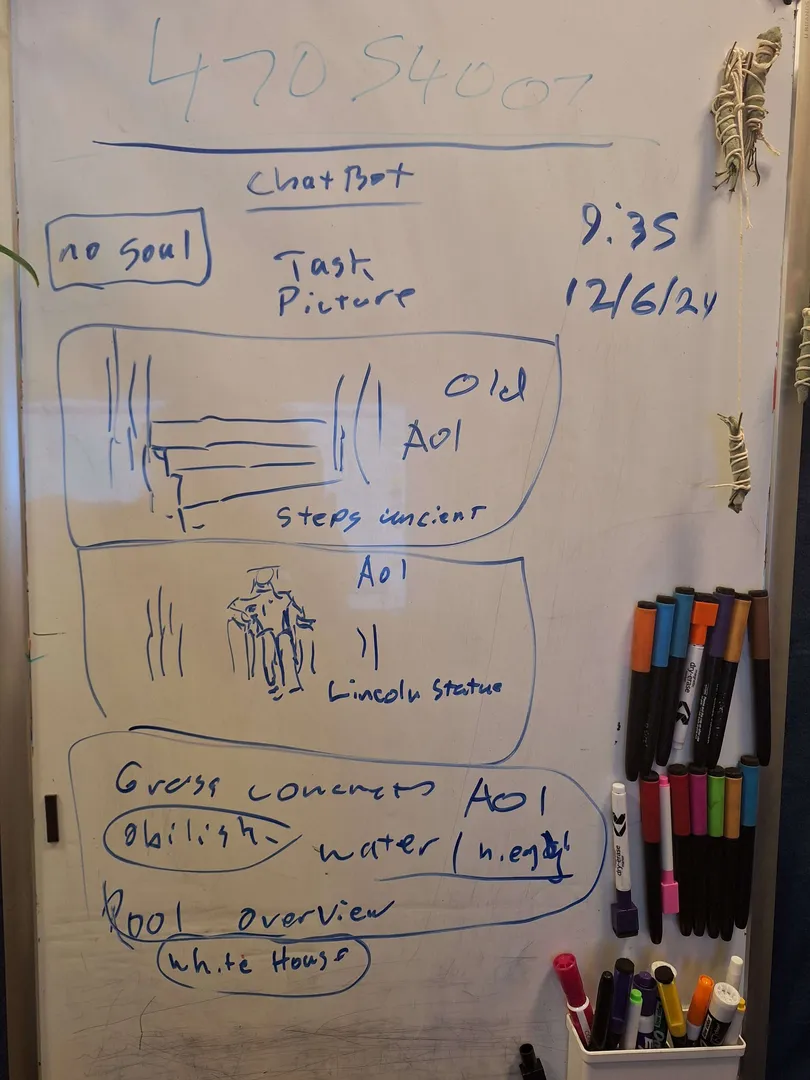 470 54007
ChatBot
no soul
9:35
Task
Picture
12/6/24
Old
AOl
steps uncient
AOl
Lincoln statue
Grass concrets AOl
obilish
water /
Pool overview
white House
dry-erase